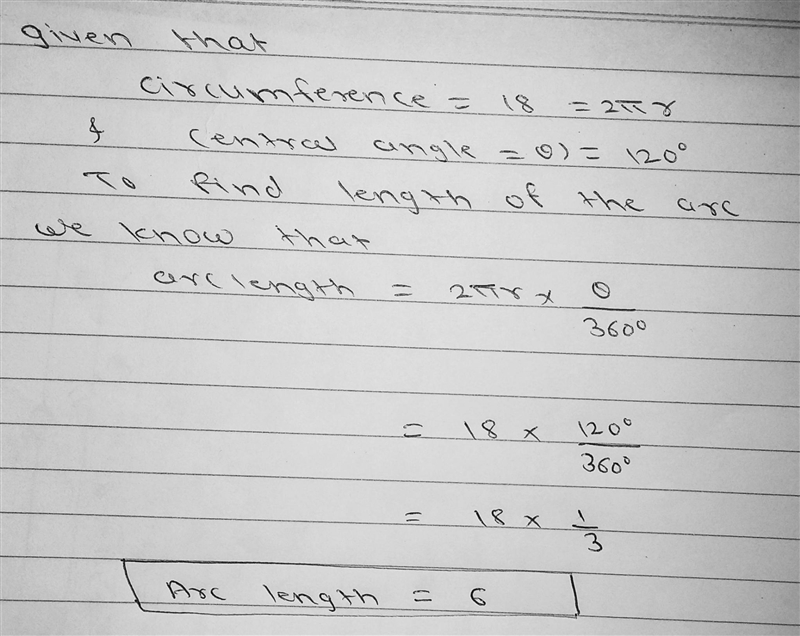 given that
circumference = 18 = 2πr
& central angle = θ) = 120°
To find length of the arc
we know that
arc length = 2πr × θ/360°
= 18 × 120°/360°
= 18 × 1/3
Arc length = 6